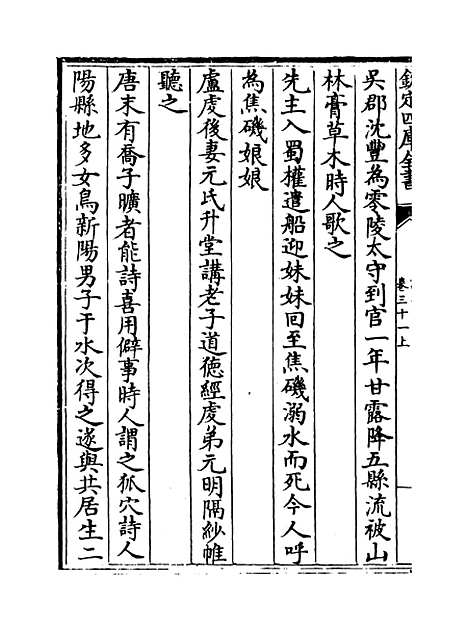 欽定四庫全書
卷三十一上
吳郡沈豐為零陵太守到官一年甘露降五縣流被山
林膏草木時人歌之
先主入蜀權遣船迎妹妹回至焦磯溺水而死今人呼
為焦磯娘娘
盧䖍後妻元氏升堂講老子道德經䖍弟元明隔紗帷
聽之
唐末有喬子曠者能詩喜用僻事時人謂之狐穴詩人
陽縣地多女鳥新陽男子于水次得之遂與共居生二